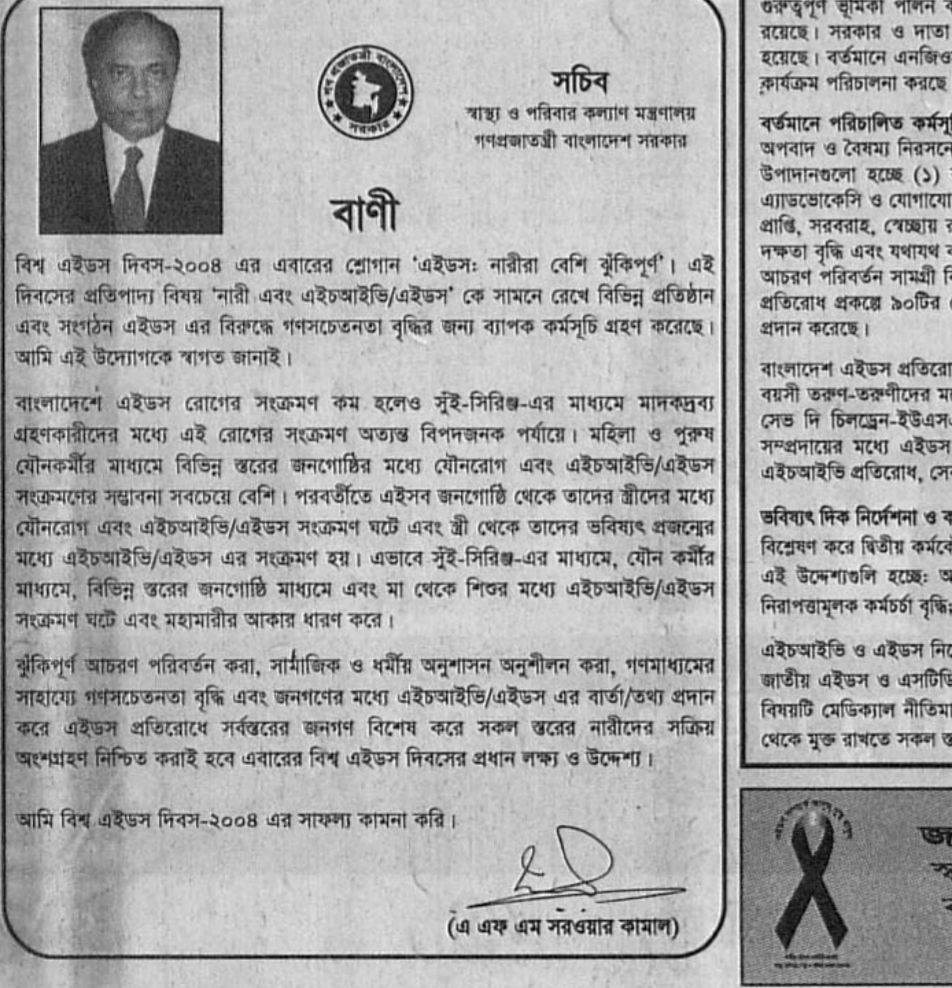 সচিব
স্বাস্থ্য ও পরিবার কল্যাণ মন্ত্রণালয়
গণপ্রজাতন্ত্রী বাংলাদেশ সরকার
বাণী
বিশ্ব এইডস দিবস-২০০৪ এর এবারের শ্লোগান ‘এইডস: নারীরা বেশি ঝুঁকিপূর্ণ’। এই
দিবসের প্রতিপাদ্য বিষয় ‘নারী এবং এইচআইভি/এইডস’ কে সামনে রেখে বিভিন্ন প্রতিষ্ঠান
এবং সংগঠন এইডস এর বিরুদ্ধে গণসচেতনতা বৃদ্ধির জন্য ব্যাপক কর্মসূচি গ্রহণ করেছে।
আমি এই উদ্যোগকে স্বাগত জানাই।
বাংলাদেশে এইডস রোগের সংক্রমণ কম হলেও সুঁই-সিরিঞ্জ-এর মাধ্যমে মাদকদ্রব্য
গ্রহণকারীদের মধ্যে এই রোগের সংক্রমণ অত্যন্ত বিপদজনক পর্যায়ে। মহিলা ও পুরুষ
যৌনকর্মীর মাধ্যমে বিভিন্ন স্তরের জনগোষ্ঠির মধ্যে যৌনরোগ এবং এইচআইভি/এইডস
সংক্রমণের সম্ভাবনা সবচেয়ে বেশি। পরবর্তীতে এইসব জনগোষ্ঠি থেকে তাদের স্ত্রীদের মধ্যে
যৌনরোগ এবং এইচআইভি/এইডস সংক্রমণ ঘটে এবং স্ত্রী থেকে তাদের ভবিষ্যৎ প্রজন্মের
মধ্যে এইচআইভি/এইডস এর সংক্রমণ হয়। এভাবে সুঁই-সিরিঞ্জ-এর মাধ্যমে, যৌন কর্মীর
মাধ্যমে, বিভিন্ন স্তরের জনগোষ্ঠি মাধ্যমে এবং মা থেকে শিশুর মধ্যে এইচআইভি/এইডস
সংক্রমণ ঘটে এবং মহামারীর আকার ধারণ করে।
ঝুঁকিপূর্ণ আচরণ পরিবর্তন করা, সামাজিক ও ধর্মীয় অনুশাসন অনুশীলন করা, গণমাধ্যমের
সাহায্যে গণসচেতনতা বৃদ্ধি এবং জনগণের মধ্যে এইচআইভি/এইডস এর বার্তা/তথ্য প্রদান
করে এইডস প্রতিরোধে সর্বস্তরের জনগণ বিশেষ করে সকল স্তরের নারীদের সক্রিয়
অংশগ্রহণ নিশ্চিত করাই হবে এবারের বিশ্ব এইডস দিবসের প্রধান লক্ষ্য ও উদ্দেশ্য।
আমি বিশ্ব এইডস দিবস-২০০৪ এর সাফল্য কামনা করি।
(এ এফ এম সরওয়ার কামাল)
গুরুত্বপূর্ণ ভূমিকা পালন
রয়েছে। সরকার ও দাতা
হয়েছে। বর্তমানে এনজিও
কার্যক্রম পরিচালনা করছে
বর্তমানে পরিচালিত
অপবাদ ও বৈষম্য
উপাদানগুলো হচ্ছে (১)
এ্যাডভোকেসি ও
প্রাপ্তি, সরবরাহ, স্বেচ্ছায়
দক্ষতা বৃদ্ধি এবং যথাযথ
আচরণ পরিবর্তন সামগ্রী
প্রতিরোধ প্রকল্পে ৯০টির
প্রদান করেছে।
বাংলাদেশ এইডস
বয়সী তরুণ-তরুণীদের
সেভ দি চিলড্রেন-ইউএস
সম্প্রদায়ের মধ্যে এইডস
এইচআইভি প্রতিরোধ,
ভবিষ্যৎ দিক নির্দেশনা ও
বিশ্লেষণ করে দ্বিতীয়
এই উদ্দেশ্যগুলি হচ্ছে:
নিরাপত্তামূলক কর্মচর্চা
এইচআইভি ও এইডস
জাতীয় এইডস ও
বিষয়টি মেডিক্যাল
থেকে মুক্ত রাখতে সকল